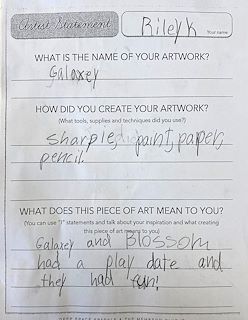 Artist Statement
Riley K
Your name
WHAT IS THE NAME OF YOUR ARTWORK?
Galaxey
HOW DID YOU CREATE YOUR ARTWORK?
(What tools, supplies and techniques did you use?)
sharpie, paint, paper,
pencil.
WHAT DOES THIS PIECE OF ART MEAN TO YOU?
(You can use "I" statements and talk about your inspiration and what creating
this piece of art means to you)
Galaxey and Blossom
had a play date and
they had fun!